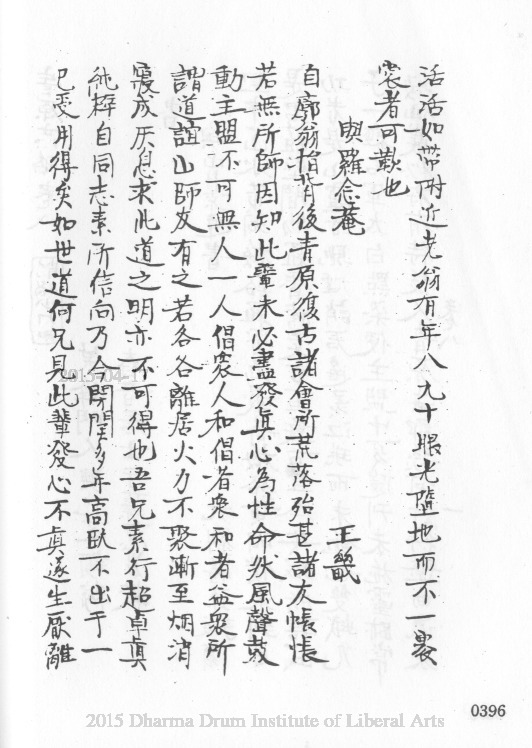 活活如帶附近老翁有年八九十眼光墮地而不一褰
裳者可歎也
與羅念菴 王畿
自廓翁捐背後青原復古諸會所荒落殆甚諸友悵悵
若無所師因知此輩未必盡發眞心為性命然風聲鼓
動主盟不可無人一人倡衆人和倡者衆和者益衆所
謂道誼山師友有之若各各離居火力不聚漸至烟消
寖成灰息求此道之明亦不可得也吾兄素行超卓眞
純粹自同志素所信向乃今閉関多年高臥不出于一
已受用得矣如世道何兄見此輩發心不眞遂生厭離
0396
2015 Dharma Drum Institute of Liberal Arts